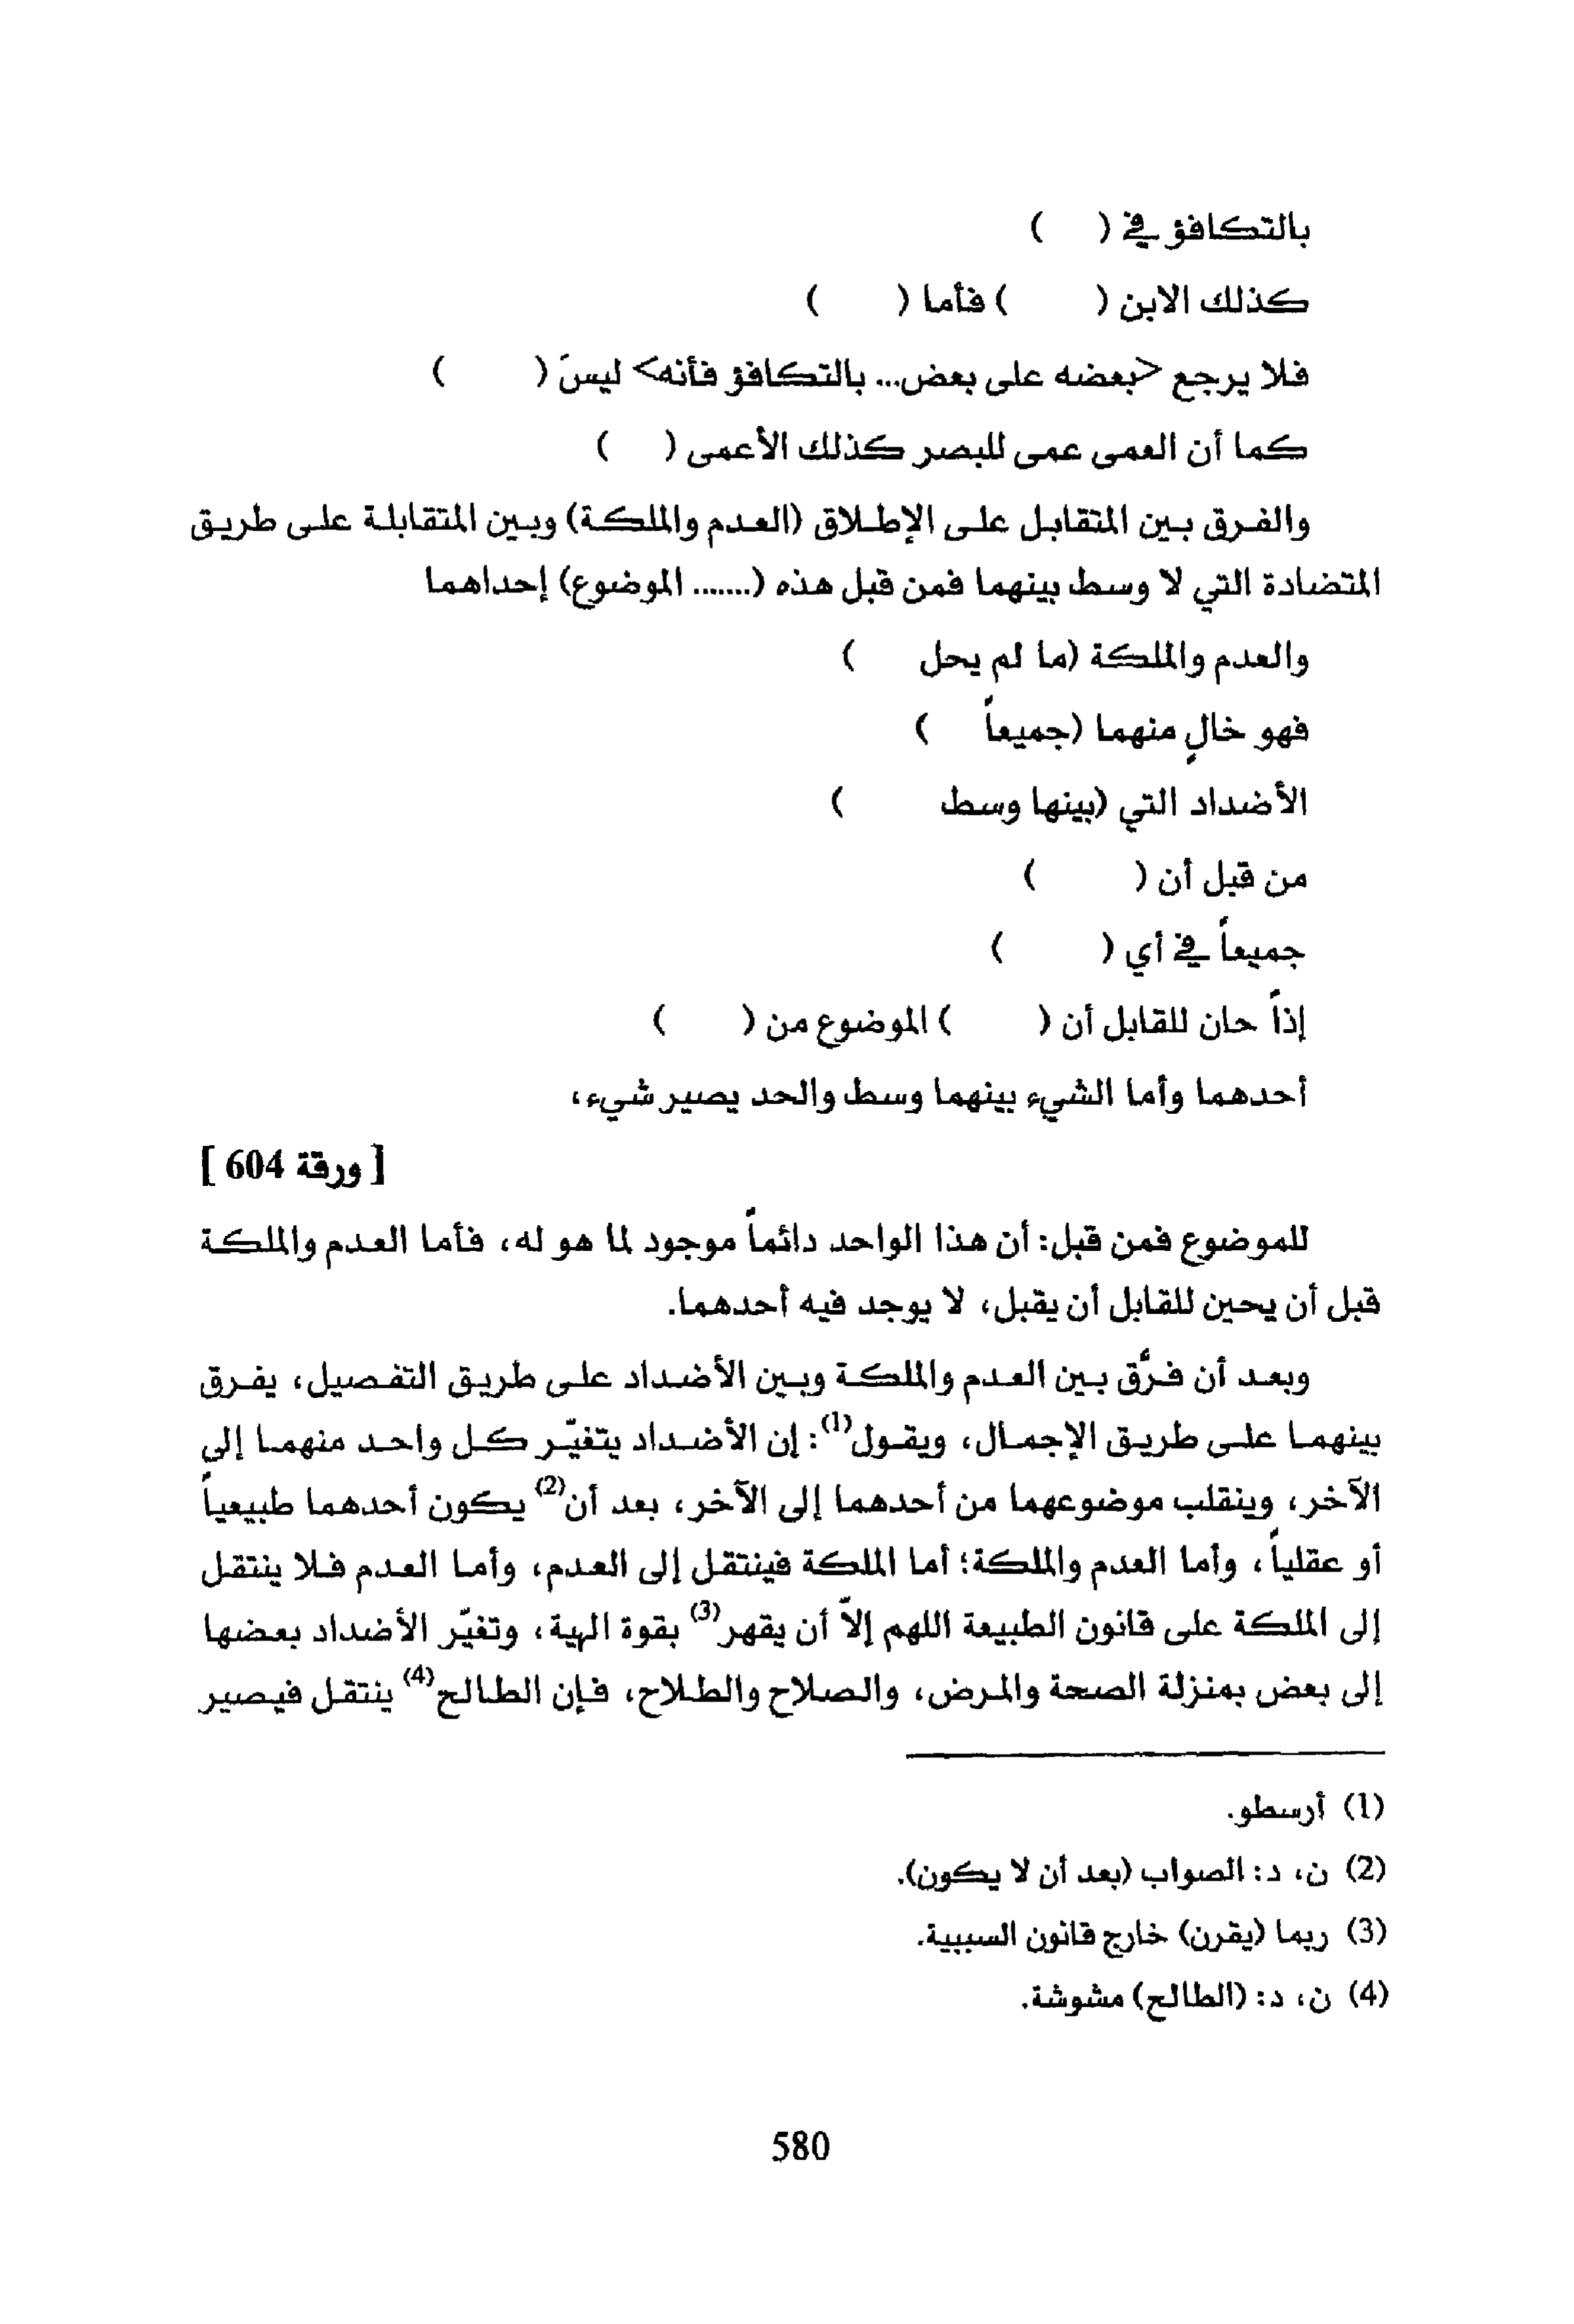 بالتكافؤ في (    )
كذلك الابن (    ) فأما (    )
فلا يرجع <بعضه على بعض... بالتكافؤ فأنه> ليسَ (    )
كما أن العمى عمى للبصر كذلك الأعمى (    )
والفرق بين المتقابل على الإطلاق (العدم والملكة) وبين المتقابلة على طريق
المتضادة التي لا وسط بينهما فمن قبل هذه (....... الموضوع) إحداهما
والعدم والملكة (ما لم يحل    )
فهو خالٍ منهما (جميعاً    )
الأضداد التي (بينها وسط    )
من قبل أن (    )
جميعاً في أي (    )
إذاً حان للقابل أن (    ) الموضوع من (    )
أحدهما وأما الشيء بينهما وسط والحد يصير شيء،
[ ورقة 604 ]
للموضوع فمن قبل: أن هذا الواحد دائماً موجود لما هو له، فأما العدم والملكة
قبل أن يحين للقابل أن يقبل، لا يوجد فيه أحدهما.
وبعد أن فرَّق بين العدم والملكة وبين الأضداد على طريق التفصيل، يفرق
بينهما على طريق الإجمال، ويقول(1): إن الأضداد يتغيّر كل واحد منهما إلى
الآخر، وينقلب موضوعهما من أحدهما إلى الآخر، بعد أن(2) يكون أحدهما طبيعياً
أو عقلياً، وأما العدم والملكة؛ أما الملكة فينتقل إلى العدم، وأما العدم فلا ينتقل
إلى الملكة على قانون الطبيعة اللهم إلاّ أن يقهر(3) بقوة الهية، وتغيّر الأضداد بعضها
إلى بعض بمنزلة الصحة والمرض، والصلاح والطلاح، فإن الطالح(4) ينتقل فيصير
(1) أرسطو.
(2) ن، د: الصواب (بعد أن لا يكون).
(3) ربما (يقرن) خارج قانون السببية.
(4) ن، د: (الطالح) مشوشة.
580